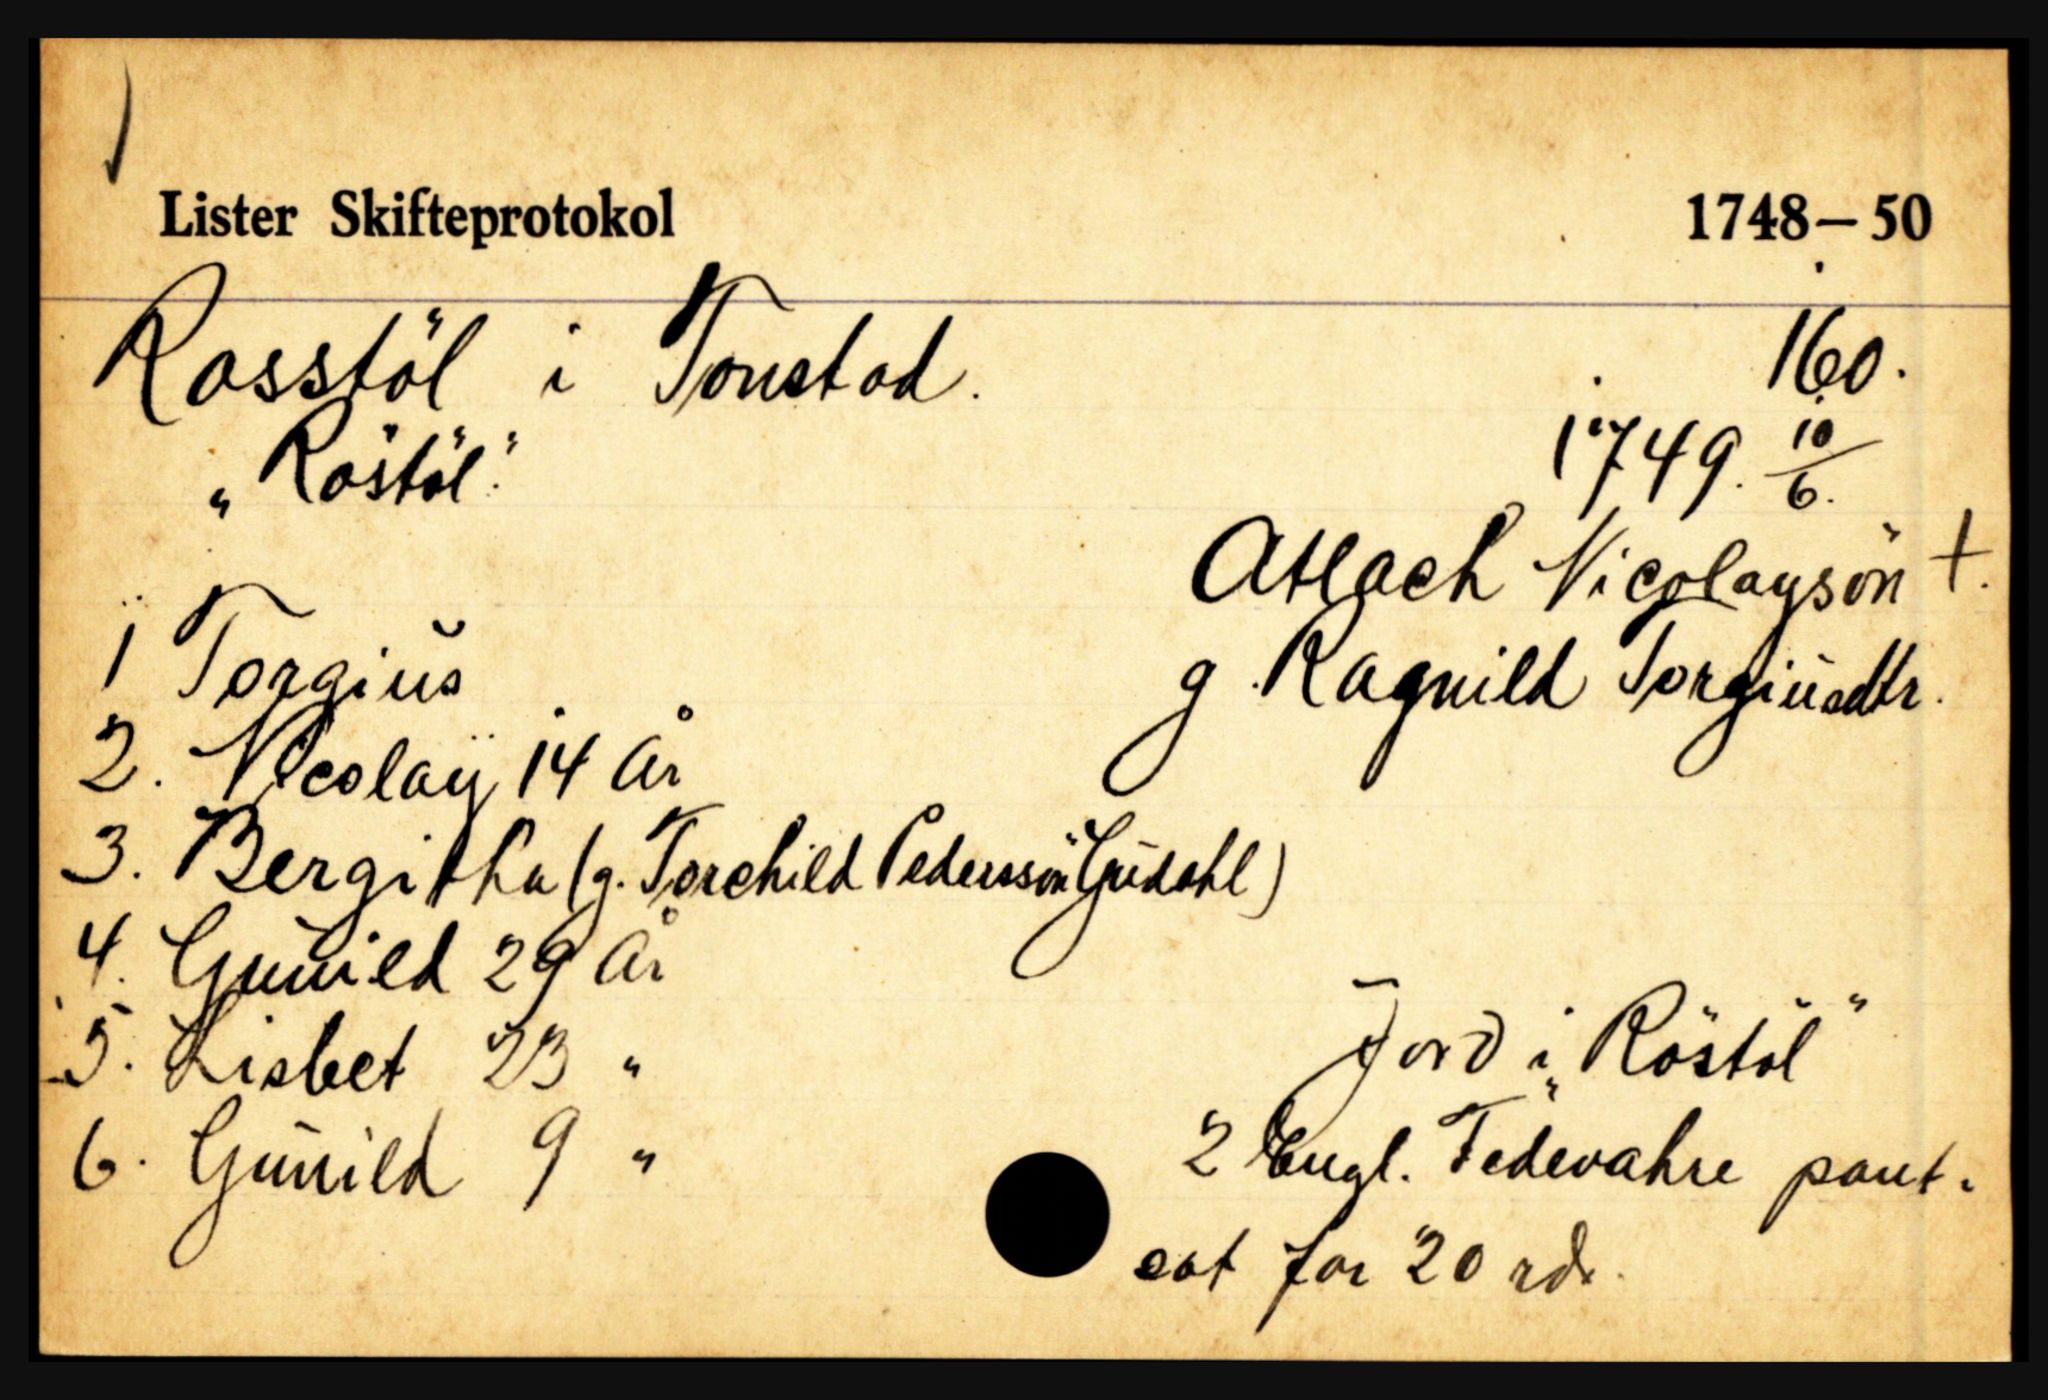 Lister Skifteprotokol 1748–50
Rosstöl i Tonstad. 160.
"Röstöl" 1749. 10/6.
Atlach Nicolaysön †.
1 Torgius
g. Ragnild Torgiusdtr.
2. Nicolaÿ 14 år
3. Bergitha (g. Torchild Pedersøn Gudahl)
4. Gunild 29 år
5. Lisbet 23 "
Jord i "Röstöl"
6. Gunild 9 "
2 Engl. Fedevahre pant-
sat for 20 rdr.